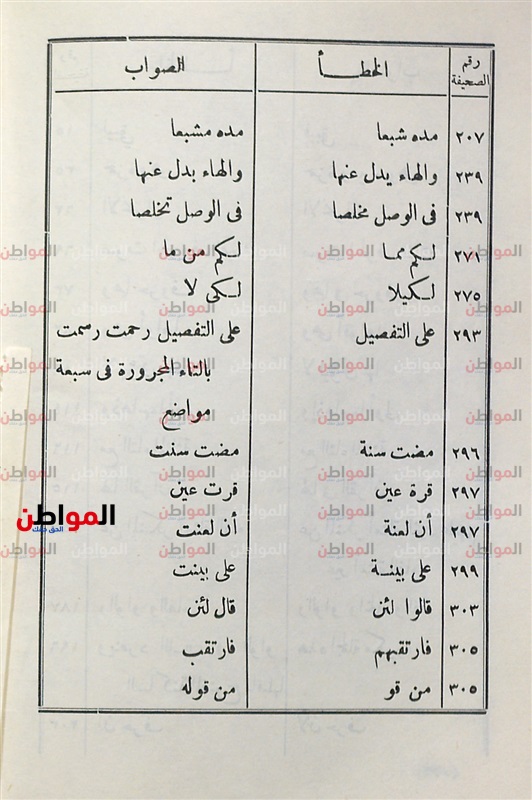 رقم الصحيفة الخطأ الصواب
٢٠٧ مده شبعا مده مشبعا
٢٣٩ والهاء يدل عنها والهاء بدل عنها
٢٣٩ فى الوصل مخلصا فى الوصل تخلصا
٢٧١ لكم مما لكم من ما
٢٧٥ لكيلا لكى لا
٢٩٣ على التفصيل على التفصيل رحمت رسمت
بالتاء المجرورة فى سبعة
مواضع
٢٩٦ مضت سنة مضت سنت
٢٩٧ قرة عين قرت عين
٢٩٧ أن لعنة أن لعنت
٢٩٩ على بينة على بينت
٣٠٣ قالوا لئن قال لئن
٣٠٥ فارتقبهم فارتقب
٣٠٥ من قو من قوله
المواطن